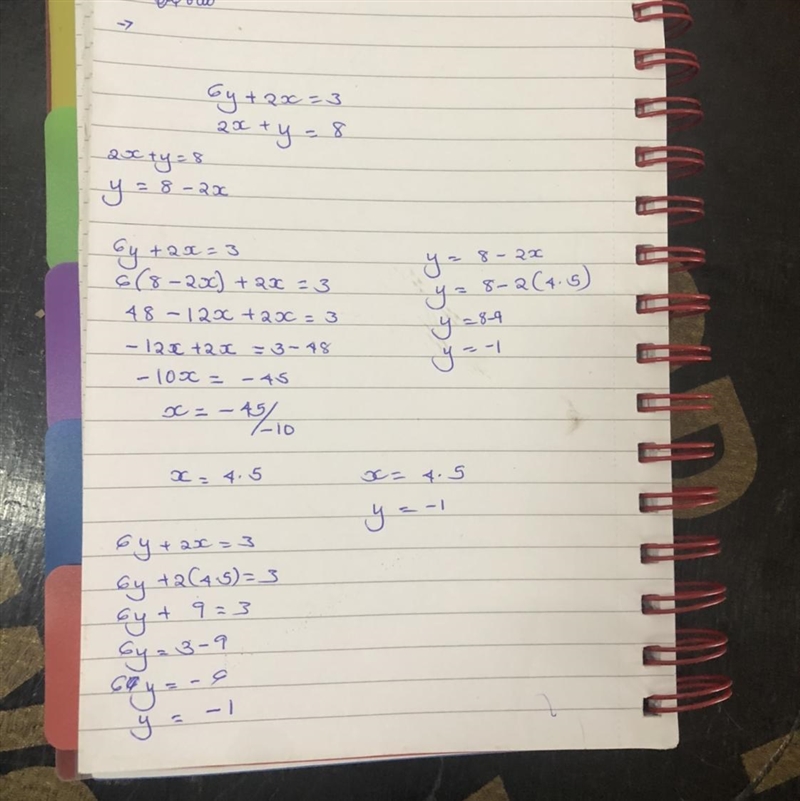 →
6y + 2x = 3
2x + y = 8
2x + y = 8
y = 8 - 2x
6y + 2x = 3
6(8 - 2x) + 2x = 3
48 - 12x + 2x = 3
-12x + 2x = 3 - 48
-10x = -45
x = -45/-10
x = 4.5
y = 8 - 2x
y = 8 - 2(4.5)
y = 8-9
y = -1
x = 4.5
y = -1
6y + 2x = 3
6y + 2(4.5) = 3
6y + 9 = 3
6y = 3 - 9
6y = -6
y = -1